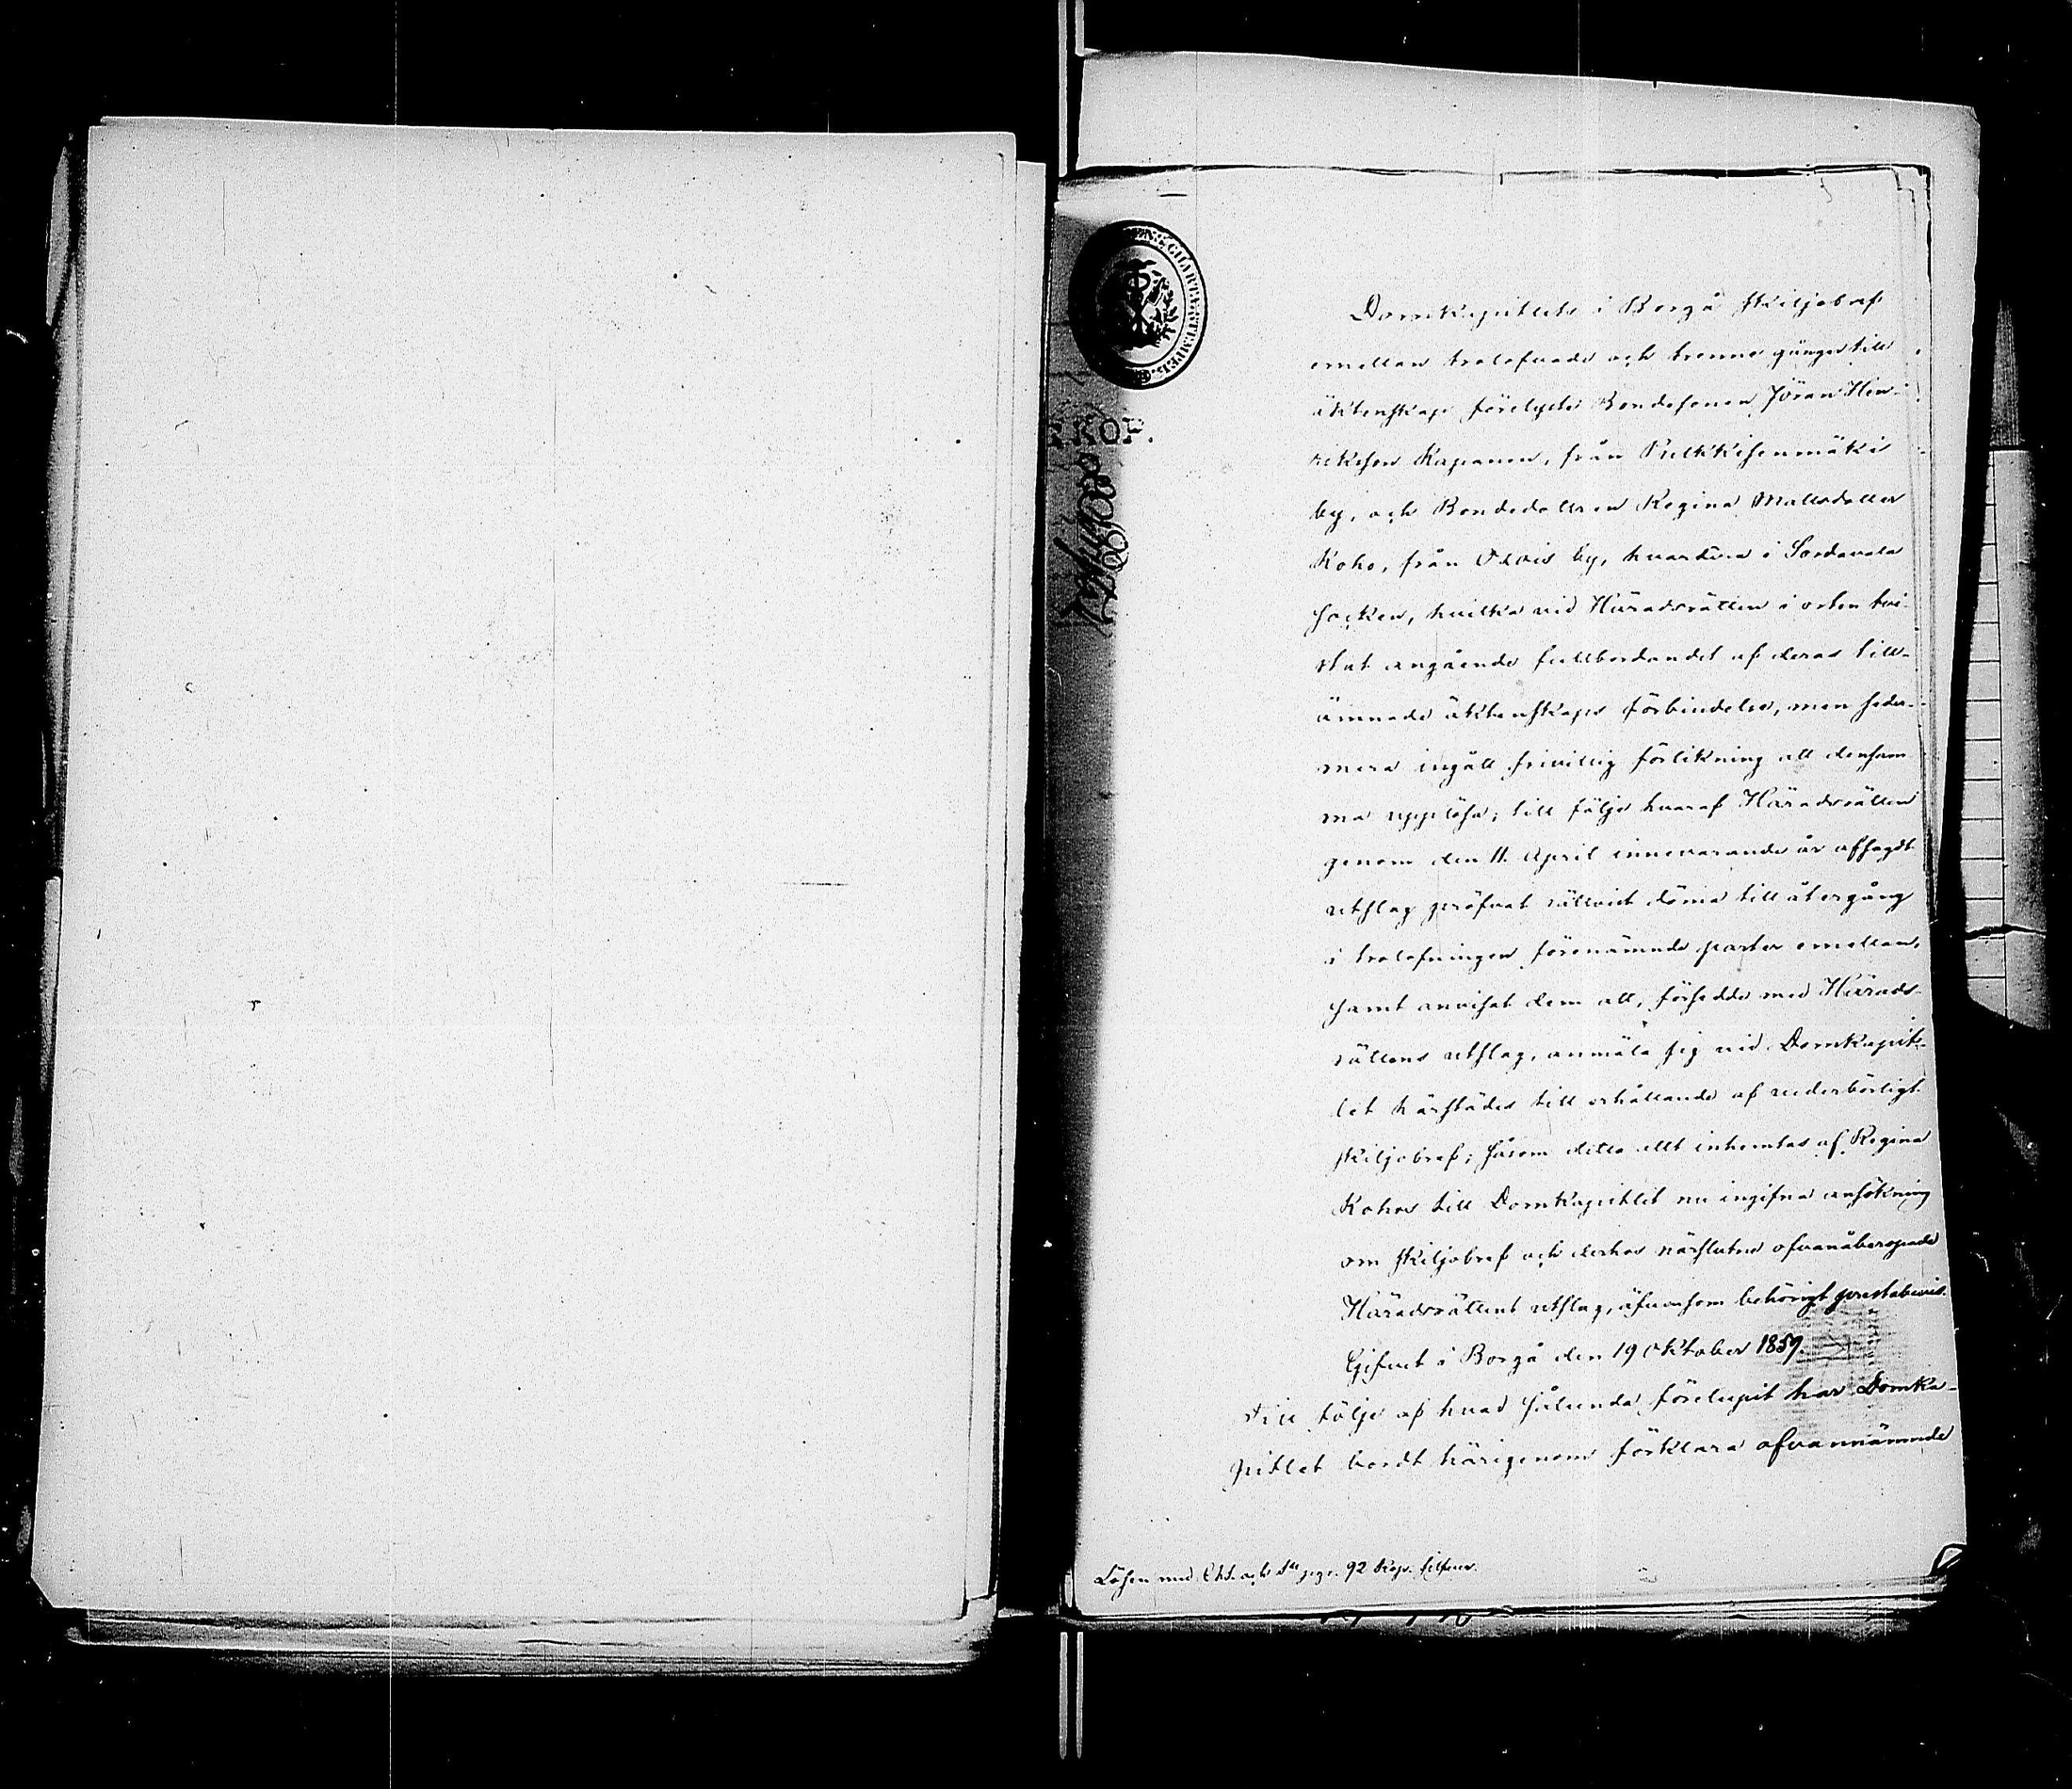 CHARTÆ STEMPEL
KOP.
Domkapitlets i Borgå skiljobref
emellan trolofvade och trenne gånger till
äktenskap förelyste Bondesonen Jöran Hen-
riksson Kapanen, från Pulkkisenmäki
by, och Bondedottren Regina Mattsdotter
Koho, från Otois by, hvardera i Sordavala
Socken, hvilka vid Häradsrätten i orten tvi-
stat angående fullbordandet af deras till-
ämnade äktenskaps förbindelse, men seder-
mera ingått frivillig förlikning att densam-
ma upplösa; till följe hvaraf Häradsrätten
genom den 11. April innevarande år afsagdt
utslag pröfvat rättvist döma till återgång
i trolofningen förenämnde parter emellan,
samt anvisat dem att, försedde med Härads-
rättens utslag, anmäla sig vid Domkapit-
let härstädes till erhållande af vederbörligt
skiljobref; såsom detta allt inhemtas af Regina
Kohos till Domkapitlet nu ingifna ansökning
om skiljobref och derhos närslutne ofvanåberopade
Häradsrättens utslag, äfvensom behörigt prestebevis.
Gifvet i Borgå den 19 Oktober 1859.
Till följe af hvad sålunda förelupit har Domka-
pitlet bordt härigenom förklara ofvannämnde
Lösen med Cht. och 92 Kop. silfver.